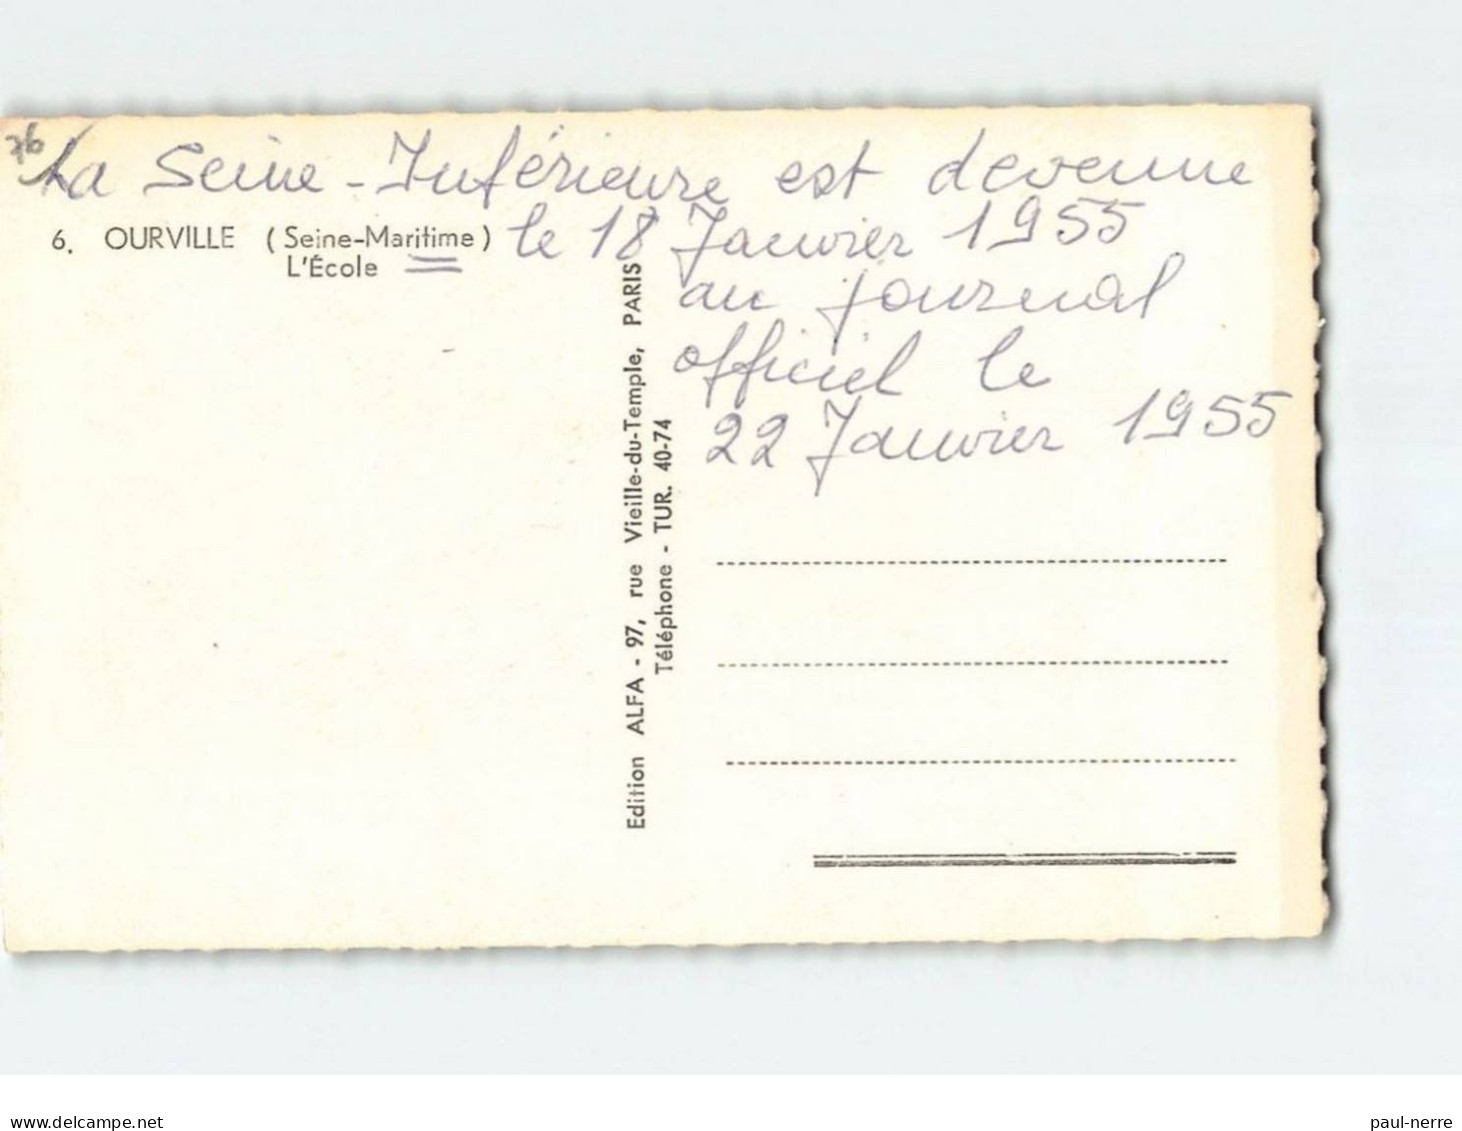 76
La Seine-Inférieure est devenue
6. OURVILLE (Seine-Maritime) le 18 Janvier 1955
L'École
au journal
officiel le
22 Janvier 1955
Edition ALFA - 97, rue Vieille-du-Temple, PARIS
Téléphone - TUR. 40-74
www.delcampe.net
paul-nerre